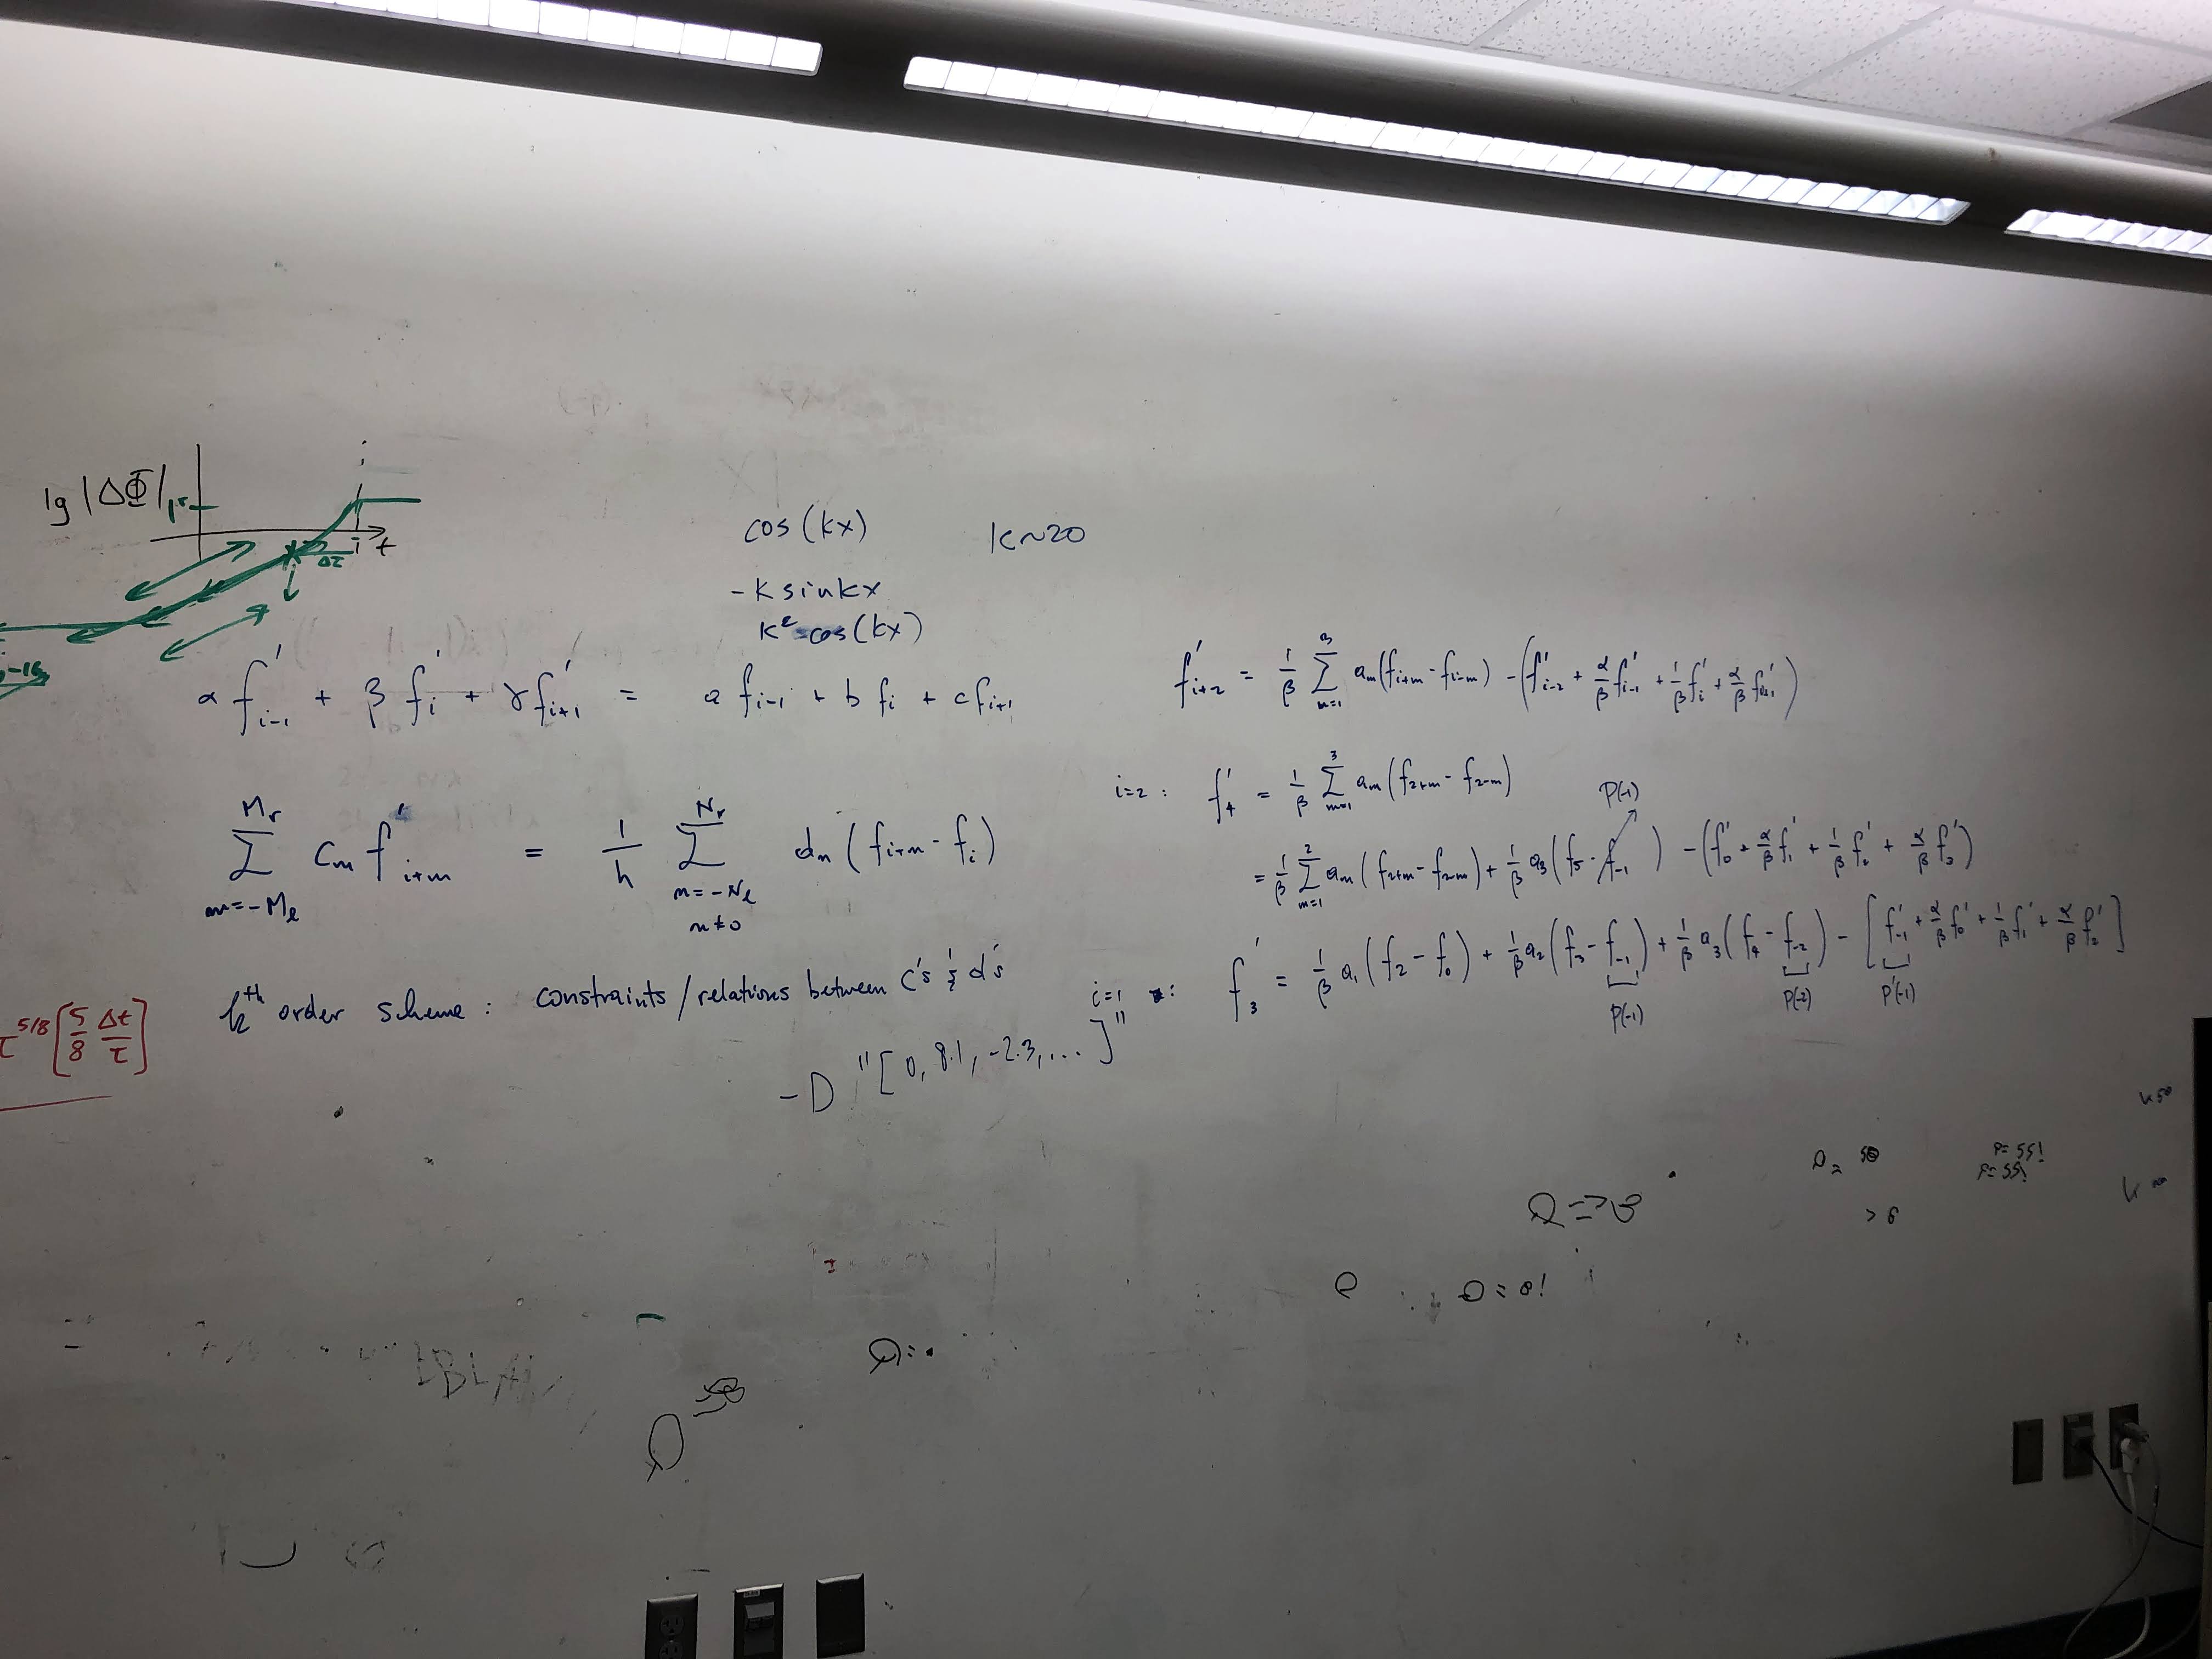 lg |ΔΦ|
i
t
Δτ
i
-16
cos (kx)
k~20
- k sin kx
k² cos (kx)
α f'_{i-1} + β f'_i + γ f'_{i+1} = a f_{i-1} + b f_i + c f_{i+1}
∑_{m=-M_l}^{M_r} c_m f'_{i+m} = 1/h ∑_{n=-N_l, n≠0}^{N_r} d_n (f_{i+n} - f_i)
k^{th} order scheme : constraints/relations between c's & d's
τ^{5/8} [5/8 Δt/τ]
-D "[0, 8.1, -2.3, ...]"
f'_{i+2} = 1/β ∑_{m=1}^{3} a_m (f_{i+m} - f_{i-m}) - (f'_{i-2} + α/β f'_{i-1} + 1/β f'_i + α/β f'_{i+1})
i=2 : f'_4 = 1/β ∑_{m=1}^{3} a_m (f_{2+m} - f_{2-m})
P(-1)
= 1/β ∑_{m=1}^{2} a_m (f_{2+m} - f_{2-m}) + 1/β a_3 (f_5 - f_{-1}) - (f'_0 + α/β f'_1 + 1/β f'_2 + α/β f'_3)
i=1 : f'_3 = 1/β a_1 (f_2 - f_0) + 1/β a_2 (f_3 - f_{-1}) + 1/β a_3 (f_4 - f_{-2}) - [f'_{-1} + α/β f'_0 + 1/β f'_1 + α/β f'_2]
P(-1) P(-2) P'(-1)
P=55!
P=55!
> 6